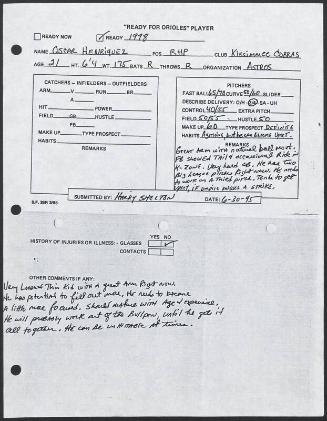 "READY FOR ORIOLES" PLAYER
READY NOW ✓ READY 1998
NAME Oscar Henriquez POS RHP CLUB Kissimmee Cobras
AGE 21 HT. 6'4 WT 175 BATS R THROWS R ORGANIZATION Astros
CATCHERS - INFIELDERS - OUTFIELDERS
ARM V RUN ER
A
HIT POWER
FIELD GB HUSTLE
MAKE UP TYPE PROSPECT
HABITS
REMARKS
PITCHERS
FAST BALL 65/70 CURVE SLIDER
DESCRIBE DELIVERY: OH - SA - UH
CONTROL 40/55 EXTRA PITCH
FIELD 50/55 HUSTLE 50
MAKE UP 60 TYPE PROSPECT Definite
HABITS
REMARKS
Great arm with natural ball mvmt.
FB showed Tail & occasional Ride in
K. Zone. Very hard CB. He has two
Big League pitches Right now. He needs
to work on a third pitch. Tends to get
SUBMITTED BY: Harry Shelton DATE 6-30-95
B.F. 25R 3/85
YES NO
HISTORY OF INJURIES OR ILLNESS: - GLASSES ✓
CONTACTS
OTHER COMMENTS IF ANY:
Very Loose Thin Kid with a great Arm Right now
He has potential to fill out more. He needs to become
A little more focused. Should mature with Age & experience.
He will probably work out of the Bullpen, until he gets it
all together. He can be hittable At times.